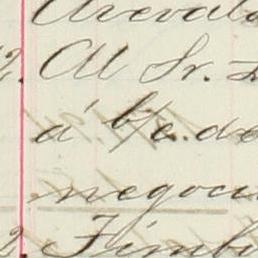 Arevalo
2. Al Sr.
á be. de
negoci
2. Timb